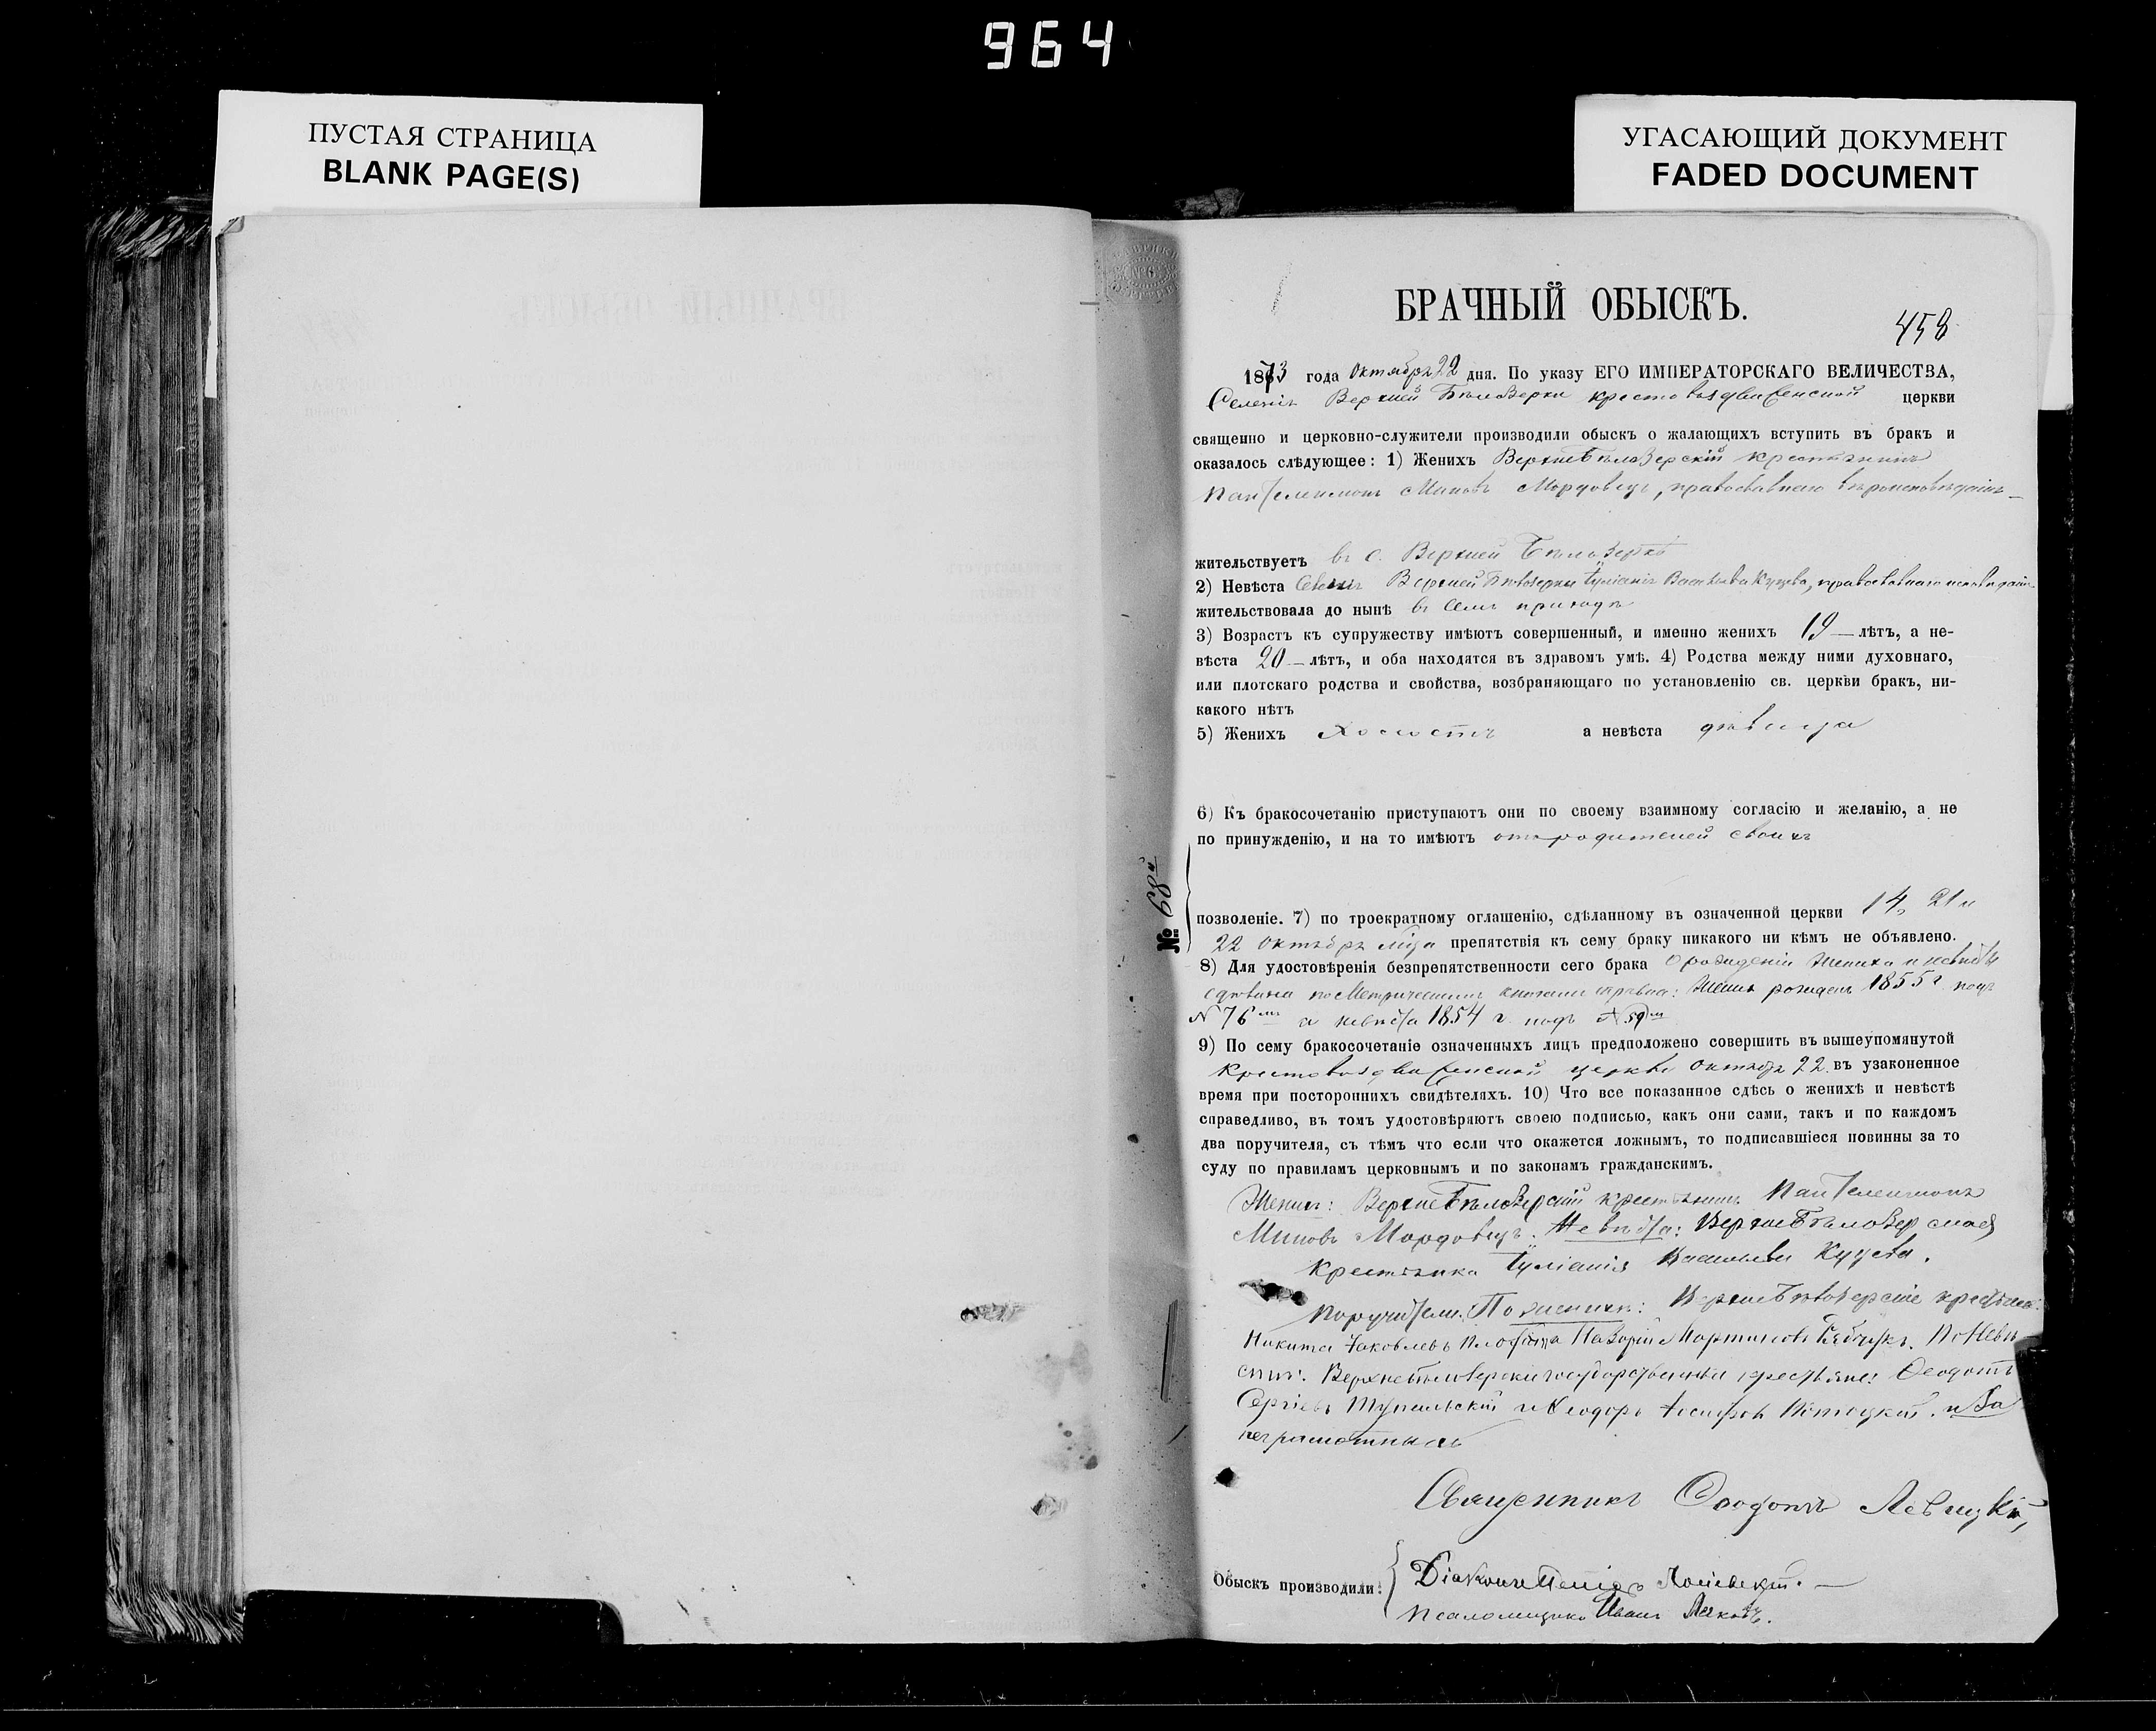 964
ПУСТАЯ СТРАНИЦА
BLANK PAGE(S)
УГАСАЮЩИЙ ДОКУМЕНТ
FADED DOCUMENT
БРАЧНЫЙ ОБЫСКЪ.
458
1873 года Октября 22 дня. По указу ЕГО ИМПЕРАТОРСКАГО ВЕЛИЧЕСТВА,
Селенія Верхней Бѣлозерки Крестовоздвиженской церкви
священно и церковно-служители производили обыскъ о жалающихъ вступить въ бракъ и
оказалось слѣдующее: 1) Женихъ ВерхнеБѣлозерскій крестьянинъ
Пантелеимонъ Миновъ Мордовецъ, православнаго вѣроисповѣданія
жительствуетъ въ с. Верхней Бѣлозеркѣ
2) Невѣста Верхней Бѣлозерки Іуліанія Васильева Куцева, православнаго
жительствовала до нынѣ въ семъ приходѣ
3) Возрастъ къ супружеству имѣютъ совершенный, и именно женихъ 19 лѣтъ, а не-
вѣста 20 лѣтъ, и оба находятся въ здравомъ умѣ. 4) Родства между ними духовнаго,
или плотскаго родства и свойства, возбраняющаго по установленію св. церкви бракъ, ни-
какого нѣтъ
5) Женихъ Холостъ а невѣста дѣвица
6) Къ бракосочетанію приступаютъ они по своему взаимному согласію и желанію, а не
по принужденію, и на то имѣютъ отъ родителей своихъ
№ 68й
позволеніе. 7) по троекратному оглашенію, сдѣланному въ означенной церкви 14, 21 и
22 октября м҃ца препятствія къ сему браку никакого ни кѣмъ не объявлено.
8) Для удостовѣренія безпрепятственности сего брака о рожденіи жениха и невѣсты
сдѣлана по Метрическимъ книгамъ справка: Женихъ рожденъ 1855 г подъ
№ 76мъ а невѣста 1854 г. подъ № 59мъ
9) По сему бракосочетаніе означенныхъ лицъ предположено совершить въ вышеупомянутой
Крестовоздвиженской церкви октября 22 въ узаконенное
время при постороннихъ свидѣтеляхъ. 10) Что все показанное сдѣсь о женихѣ и невѣстѣ
справедливо, въ томъ удостовѣряютъ своею подписью, какъ они сами, такъ и по каждомъ
два поручителя, съ тѣмъ что если что окажется ложнымъ, то подписавшіеся повинны за то
суду по правиламъ церковнымъ и по законамъ гражданскимъ.
Женихъ: ВерхнеБѣлозерскій крестьянинъ Пантелеимонъ
Миновъ Мордовецъ. Невѣста: ВерхнеБѣлозерская
крестьянка Іуліанія Васильева Куцева.
Поручители. По женихѣ: ВерхнеБѣлозерскіе
Никита Яковлевъ Мартиновъ По Невѣ
стѣ: Верхнебѣлозерскіе государственные крестьяне: Ѳеодотъ
Сергіевъ и Ѳеодоръ Іосифовъ и За
неграмотныхъ
Священникъ Ѳеодотъ Левицкій,
Обыскъ производили: Діаконъ
Псаломщикъ Иванъ